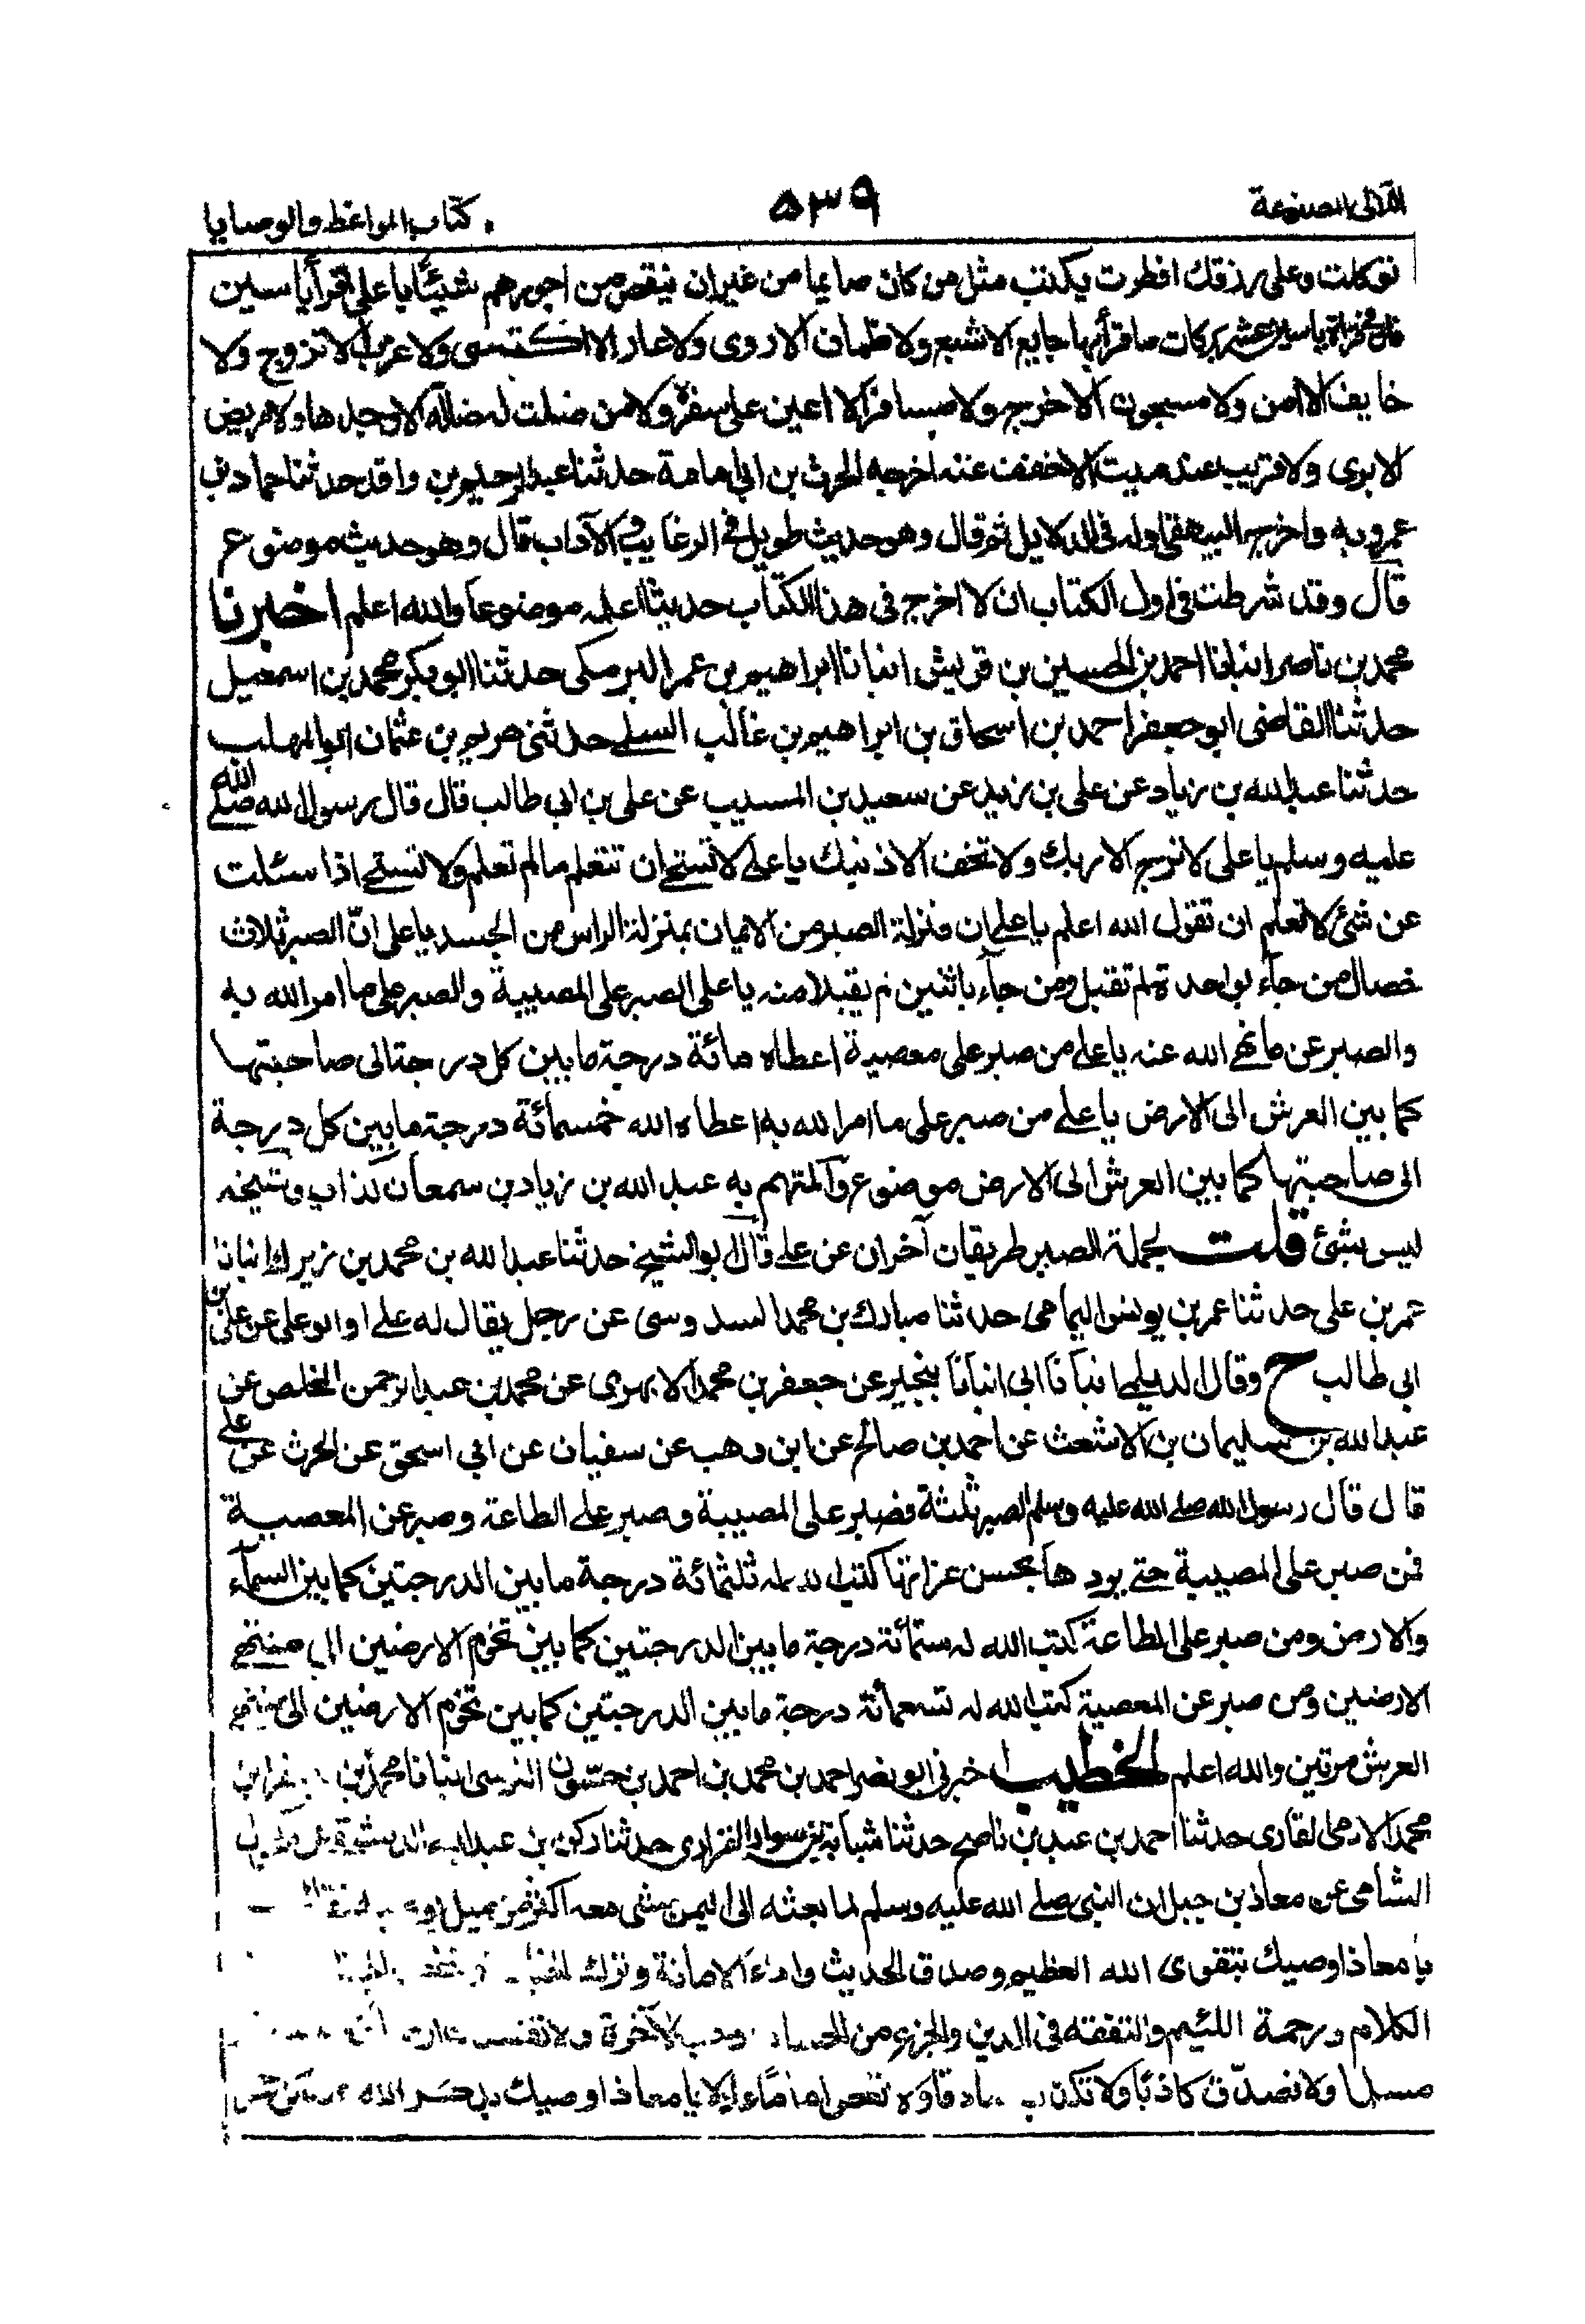 اللآلى المصنوعة
٥٣٩
كتاب المواعظ والوصايا
توكلت وعلى رزقك افطرت يكتب مثل من كان صايما من غير ان ينقص من اجورهم شيئا يا على اقرأ ياسين
فان فى قراءة ياسين عشر بركات ما قرأها جايع الا شبع ولا ظمان الا روى ولا عار الا اكتسى ولا عزب الا تزوج ولا
خايف الا امن ولا مسجون الا خرج ولا مسافر الا اعين على سفره ولا من ضلت له ضالة الا وجدها ولا مريض
الا برى ولا قريب عند ميت الا خفف عنه اخرجه الحرث بن ابى مامة حدثنا عبد الرحيم بن واقد حدثنا حماد بن
عمرو به واخرج البيهقى اوله فى الدلايل ثم قال وهو حديث طويل فى الرغايب والآداب قال وهو حديث موضوع
قال وقد شرطت فى اول الكتاب ان لا اخرج فى هذا الكتاب حديثا اعلمه موضوعا والله اعلم اخبرنا
محمد بن ناصر انبانا احمد بن الحسين بن قريش انبانا ابراهيم بن عمر البرمكى حدثنا ابو بكر محمد بن اسمعيل
حدثنا القاضى ابو جعفر احمد بن اسحاق بن ابراهيم بن غالب السلمے حدثنى مريم بن عثمان ابو المهلب
حدثنا عبد الله بن زياد عن على بن زيد عن سعيد بن المسيب عن على بن ابى طالب قال قال رسول الله صلے الله
عليه وسلم يا على لا ترج الا ربك ولا تخف الا ذنبك يا علے لا تستح ان تتعلم ما لم تعلم ولا تستحے اذا سئلت
عن شئ لا تعلم ان تقول الله اعلم يا علے ان منزلة الصبر من الايمان بمنزلة الراس من الجسد يا على انّ الصبر ثلاث
خصال من جآء بواحدة لم تقبل ومن جآء باثنين لم يقبلا منه يا على الصبر على المصيبة والصبر على ما امر الله به
والصبر عن ما نهے الله عنه يا علے من صبر على معصية اعطاه مائة درجة ما بين كل درجتالى صاحبتها
كما بين العرش الى الارض يا علے من صبر على ما امر الله به اعطاه الله خمسمائة درجة ما بين كل درجة
الى صاحبتها كما بين العرش الى الارض موضوع والمتهم به عبد الله بن زياد بن سمعان كذاب وشيخه
ليس بشئ قلت لجملة الصبر طريقان آخران عن علے قال ابو الشيخ حدثنا عبد الله بن محمد بن زيرك انبانا
عمر بن على حدثنا عمر بن يونس اليمامى حدثنا مبارك بن محمد السدوسى عن رجل يقال له علے او ابو على عن على بن
ابى طالب ح وقال الديلمے انبآنا ابى انبآنا بنجير عن جعفر بن محمد الابهرى عن محمد بن عبد الرحمن المخلص عن
عبد الله بن سليمان بن الاشعث عن احمد بن صالح عن ابن وهب عن سفيان عن ابى اسحق عن الحرث عن علے
قال قال رسول الله صلے الله عليه وسلم الصبر ثلثة فصبر على المصيبة وصبر علے الطاعة وصبر عن المعصية
فمن صبر على المصيبة حتے يردها بحسن عزائها كتب الله له ثلثمائة درجة ما بين الدرجتين كما بين السمآء
والارض ومن صبر على الطاعة كتب الله له ستمائة درجة ما بين الدرجتين كما بين تخوم الارضين الى منتهے
الارضين ومن صبر عن المعصية كتب الله له تسعمائة درجة ما بين الدرجتين كما بين تخوم الارضين الى منتهے
العرش مرتين والله اعلم الخطيب اخبرنى ابو نصر احمد بن محمد بن احمد بن حسنون النرسى انبانا محمد بن
محمد الادمى القارى حدثنا احمد بن عبيد بن ناصح حدثنا شبابة بن سوار الفزارى حدثنا ركن بن عبد الله الدمشقے عن مكحول
الشامى عن معاذ بن جبل ان النبى صلے الله عليه وسلم لما بعثه الى اليمن مشى معه اكثر من ميل
يا معاذ اوصيك بتقوى الله العظيم وصدق الحديث واداء الامانة وترك
الكلام ورحمة اليتيم والتفقه فى الدين والجزع من الحساب وحب الآخرة ولا تفسدن
مسلما ولا تصدّق كاذبا ولا تكذب صادقا ولا تعص اماما يا معاذ اوصيك بذكر الله